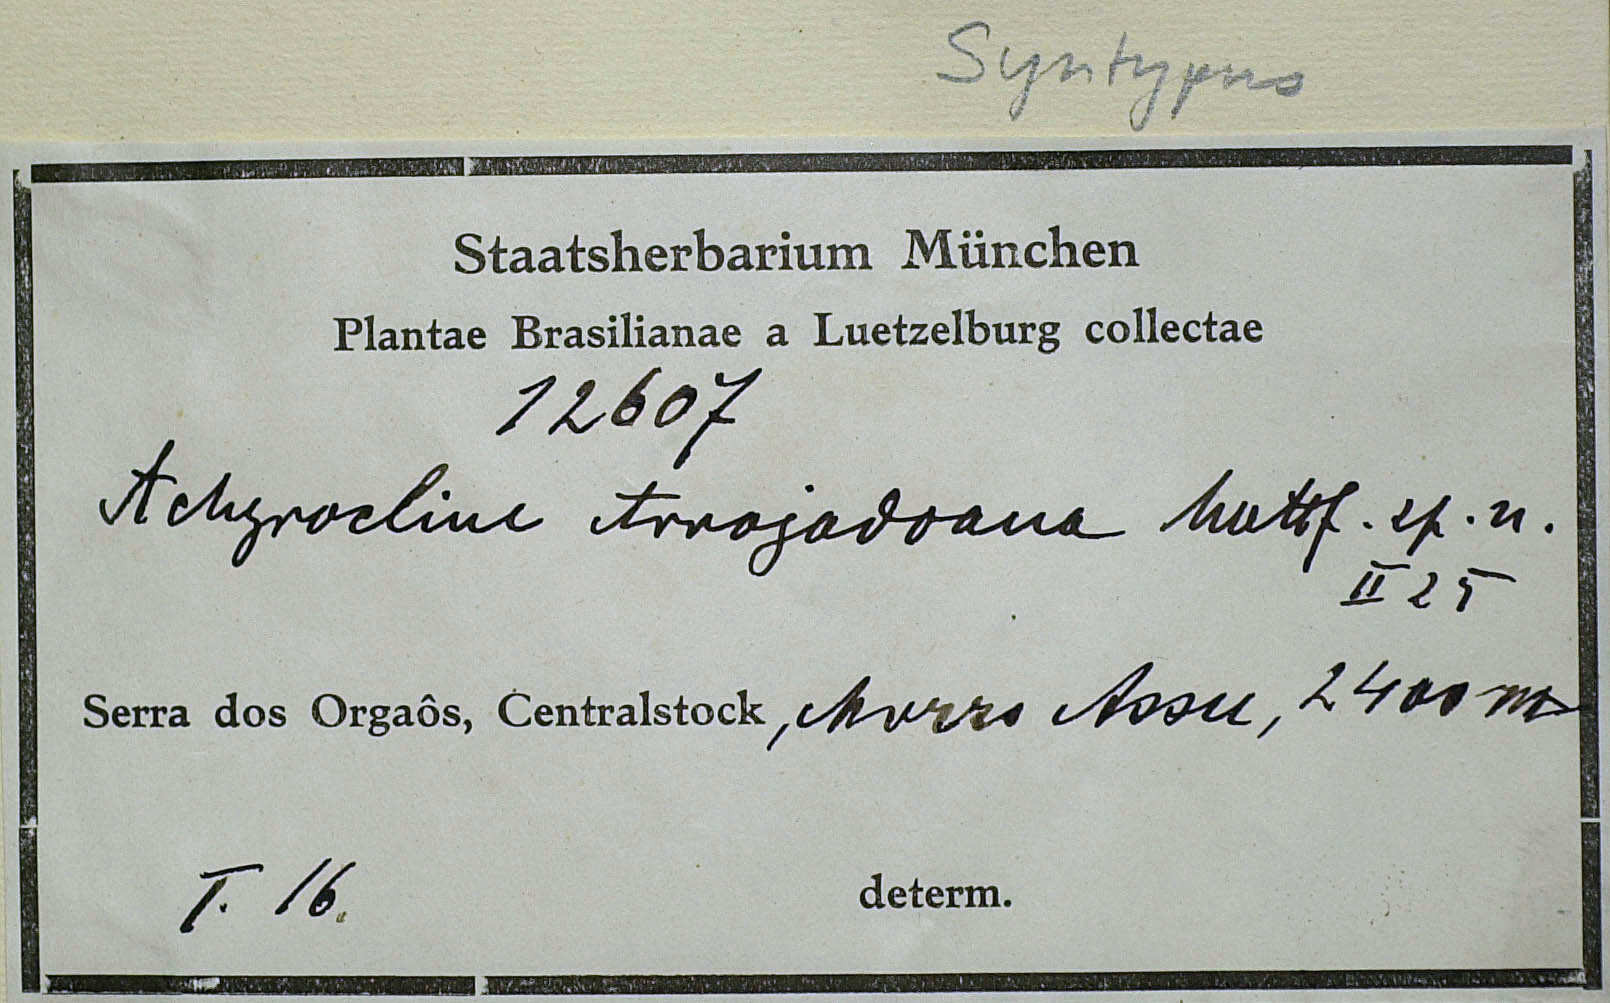 Syntypus
Staatsherbarium München
Plantae Brasilianae a Luetzelburg collectae
12607
Achyrocline Arrojadoana Mattf. sp. n.
II 25
Serra dos Orgaôs, Centralstock, Morro Assu, 2400 m
I. 16.
determ.